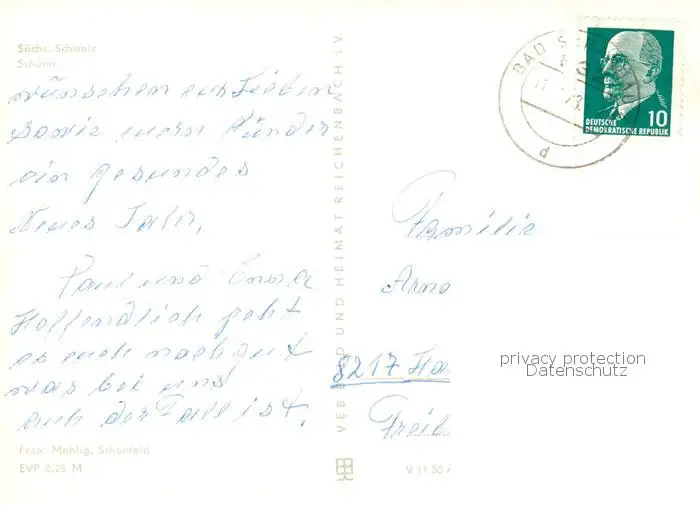 Sächs. Schweiz
wünschen euch Lieben
sowie euern Kinder
ein gesundes
Neues Jahr,
Paul und
Hoffendlich geht
es euch noch gut
was bei uns
auch der Fall ist.
Foto: Mohlig, Schönfeld
EVP 0,25 M
VEB BILD UND HEIMAT REICHENBACH I. V.
V 11 50 A
BAD SCHANDAU
d
10
DEUTSCHE
DEMOKRATISCHE REPUBLIK
Familie
Arno
8217
Freib
privacy protection
Datenschutz